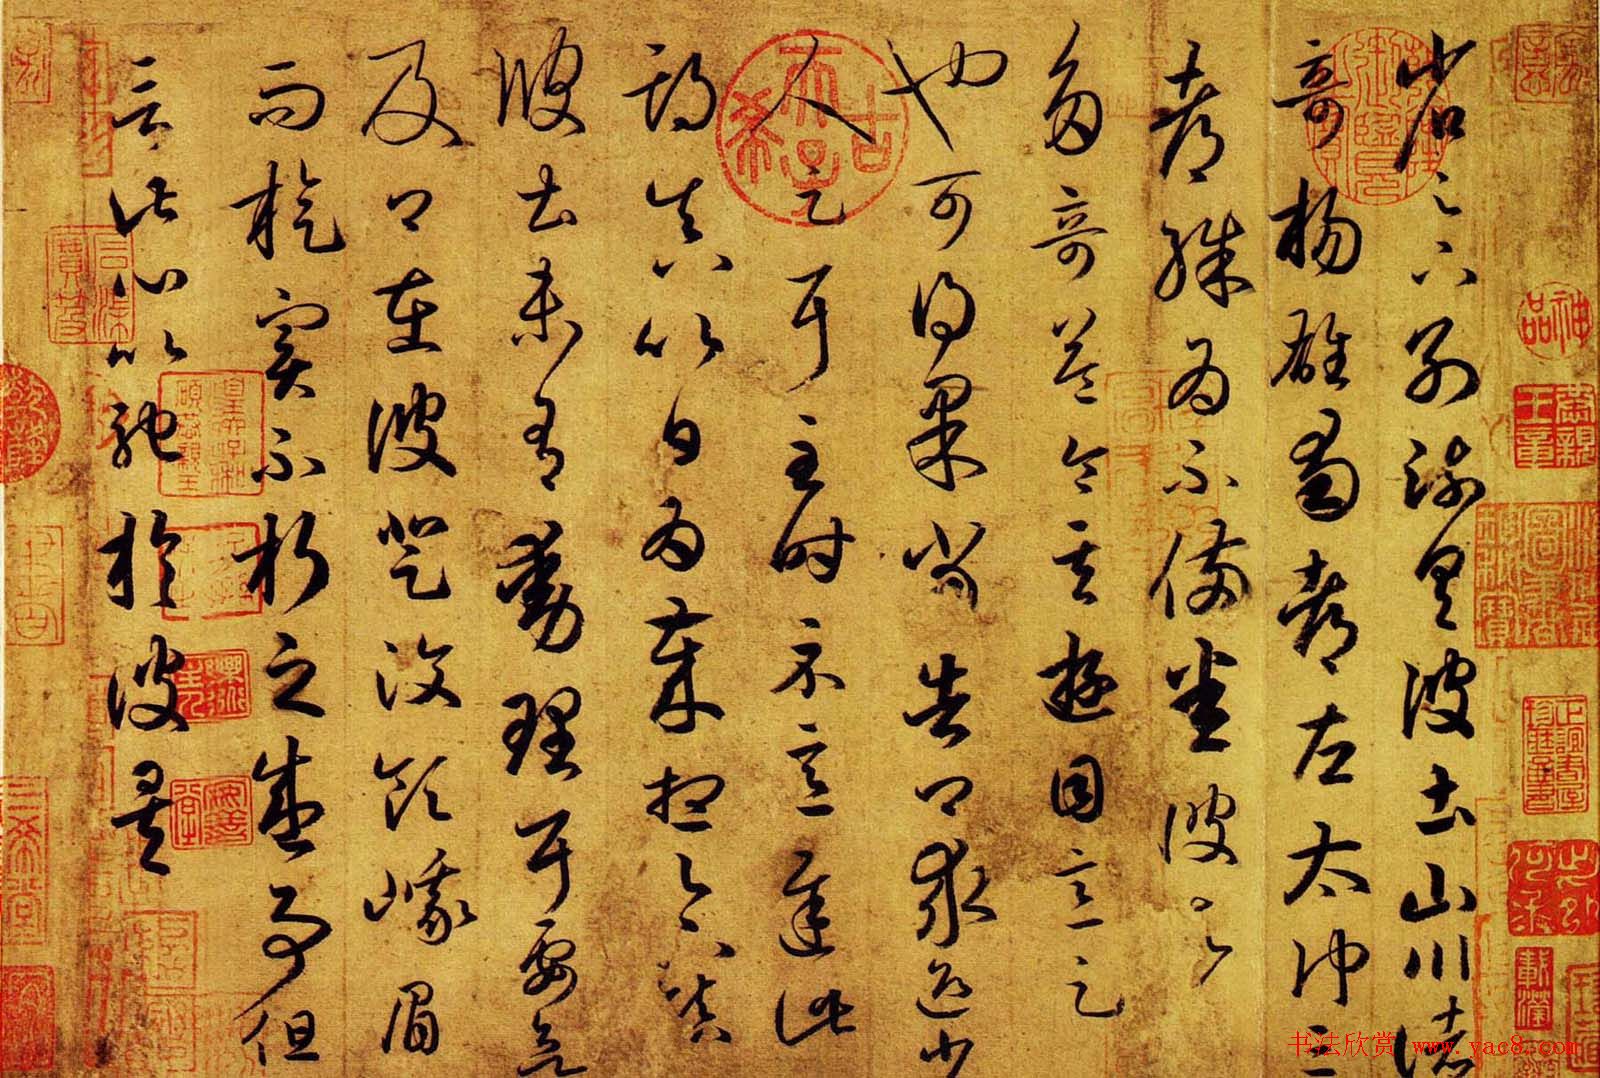 省足下別疏具彼土山川諸
奇楊雄蜀都左太沖三
都殊為不備悉彼故為
多奇益令其遊目意足
也可得果當告卿求迎少
人足耳至時示意遲此
期真以日為歲想足下鎮
彼土未有動理耳要欲
及卿在彼登汶領峨眉
而旋實不朽之盛事但
言此心以馳於彼矣
古希天子
神品
书法欣赏 www.yac8.com